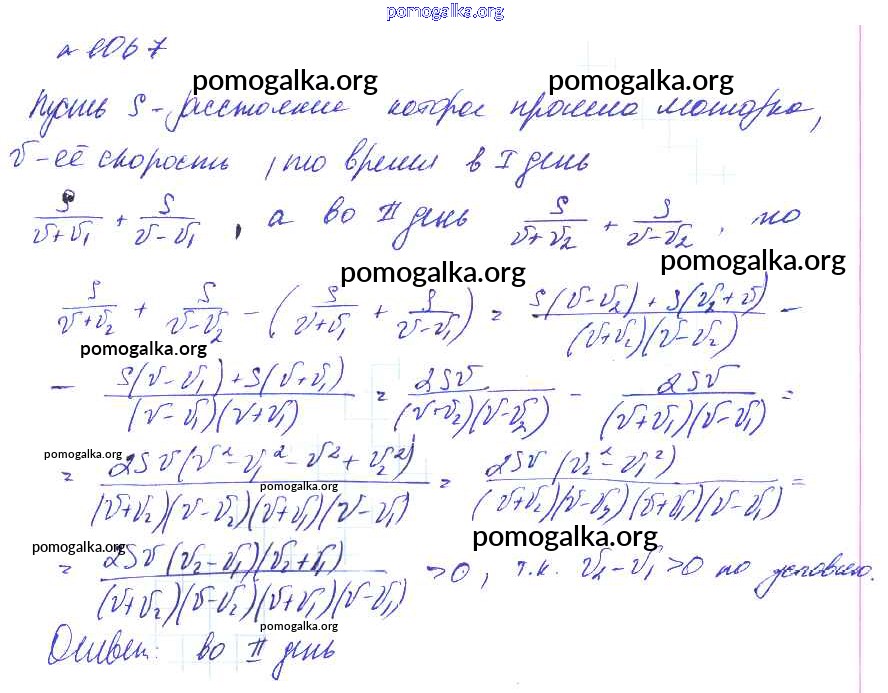 pomogalka.org
№ 1067
pomogalka.org pomogalka.org
Пусть S - расстояние которое прошла моторка,
v - её скорость, то время в I день
S/(v+v₁) + S/(v-v₁), а во II день S/(v+v₂) + S/(v-v₂), то
pomogalka.org pomogalka.org
S/(v+v₂) + S/(v-v₂) - (S/(v+v₁) + S/(v-v₁)) = (S(v-v₂) + S(v₂+v))/((v+v₂)(v-v₂)) -
pomogalka.org
- (S(v-v₁) + S(v+v₁))/((v-v₁)(v+v₁)) = 2Sv/((v+v₂)(v-v₂)) - 2Sv/((v+v₁)(v-v₁)) =
pomogalka.org
= 2Sv(v²-v₁²-v²+v₂²)/((v+v₂)(v-v₂)(v+v₁)(v-v₁)) = 2Sv(v₂²-v₁²)/((v+v₂)(v-v₂)(v+v₁)(v-v₁)) =
pomogalka.org
pomogalka.org pomogalka.org
= 2Sv(v₂-v₁)(v₂+v₁)/((v+v₂)(v-v₂)(v+v₁)(v-v₁)) > 0, т.к. v₂-v₁>0 по условию.
pomogalka.org
Ответ: во II день